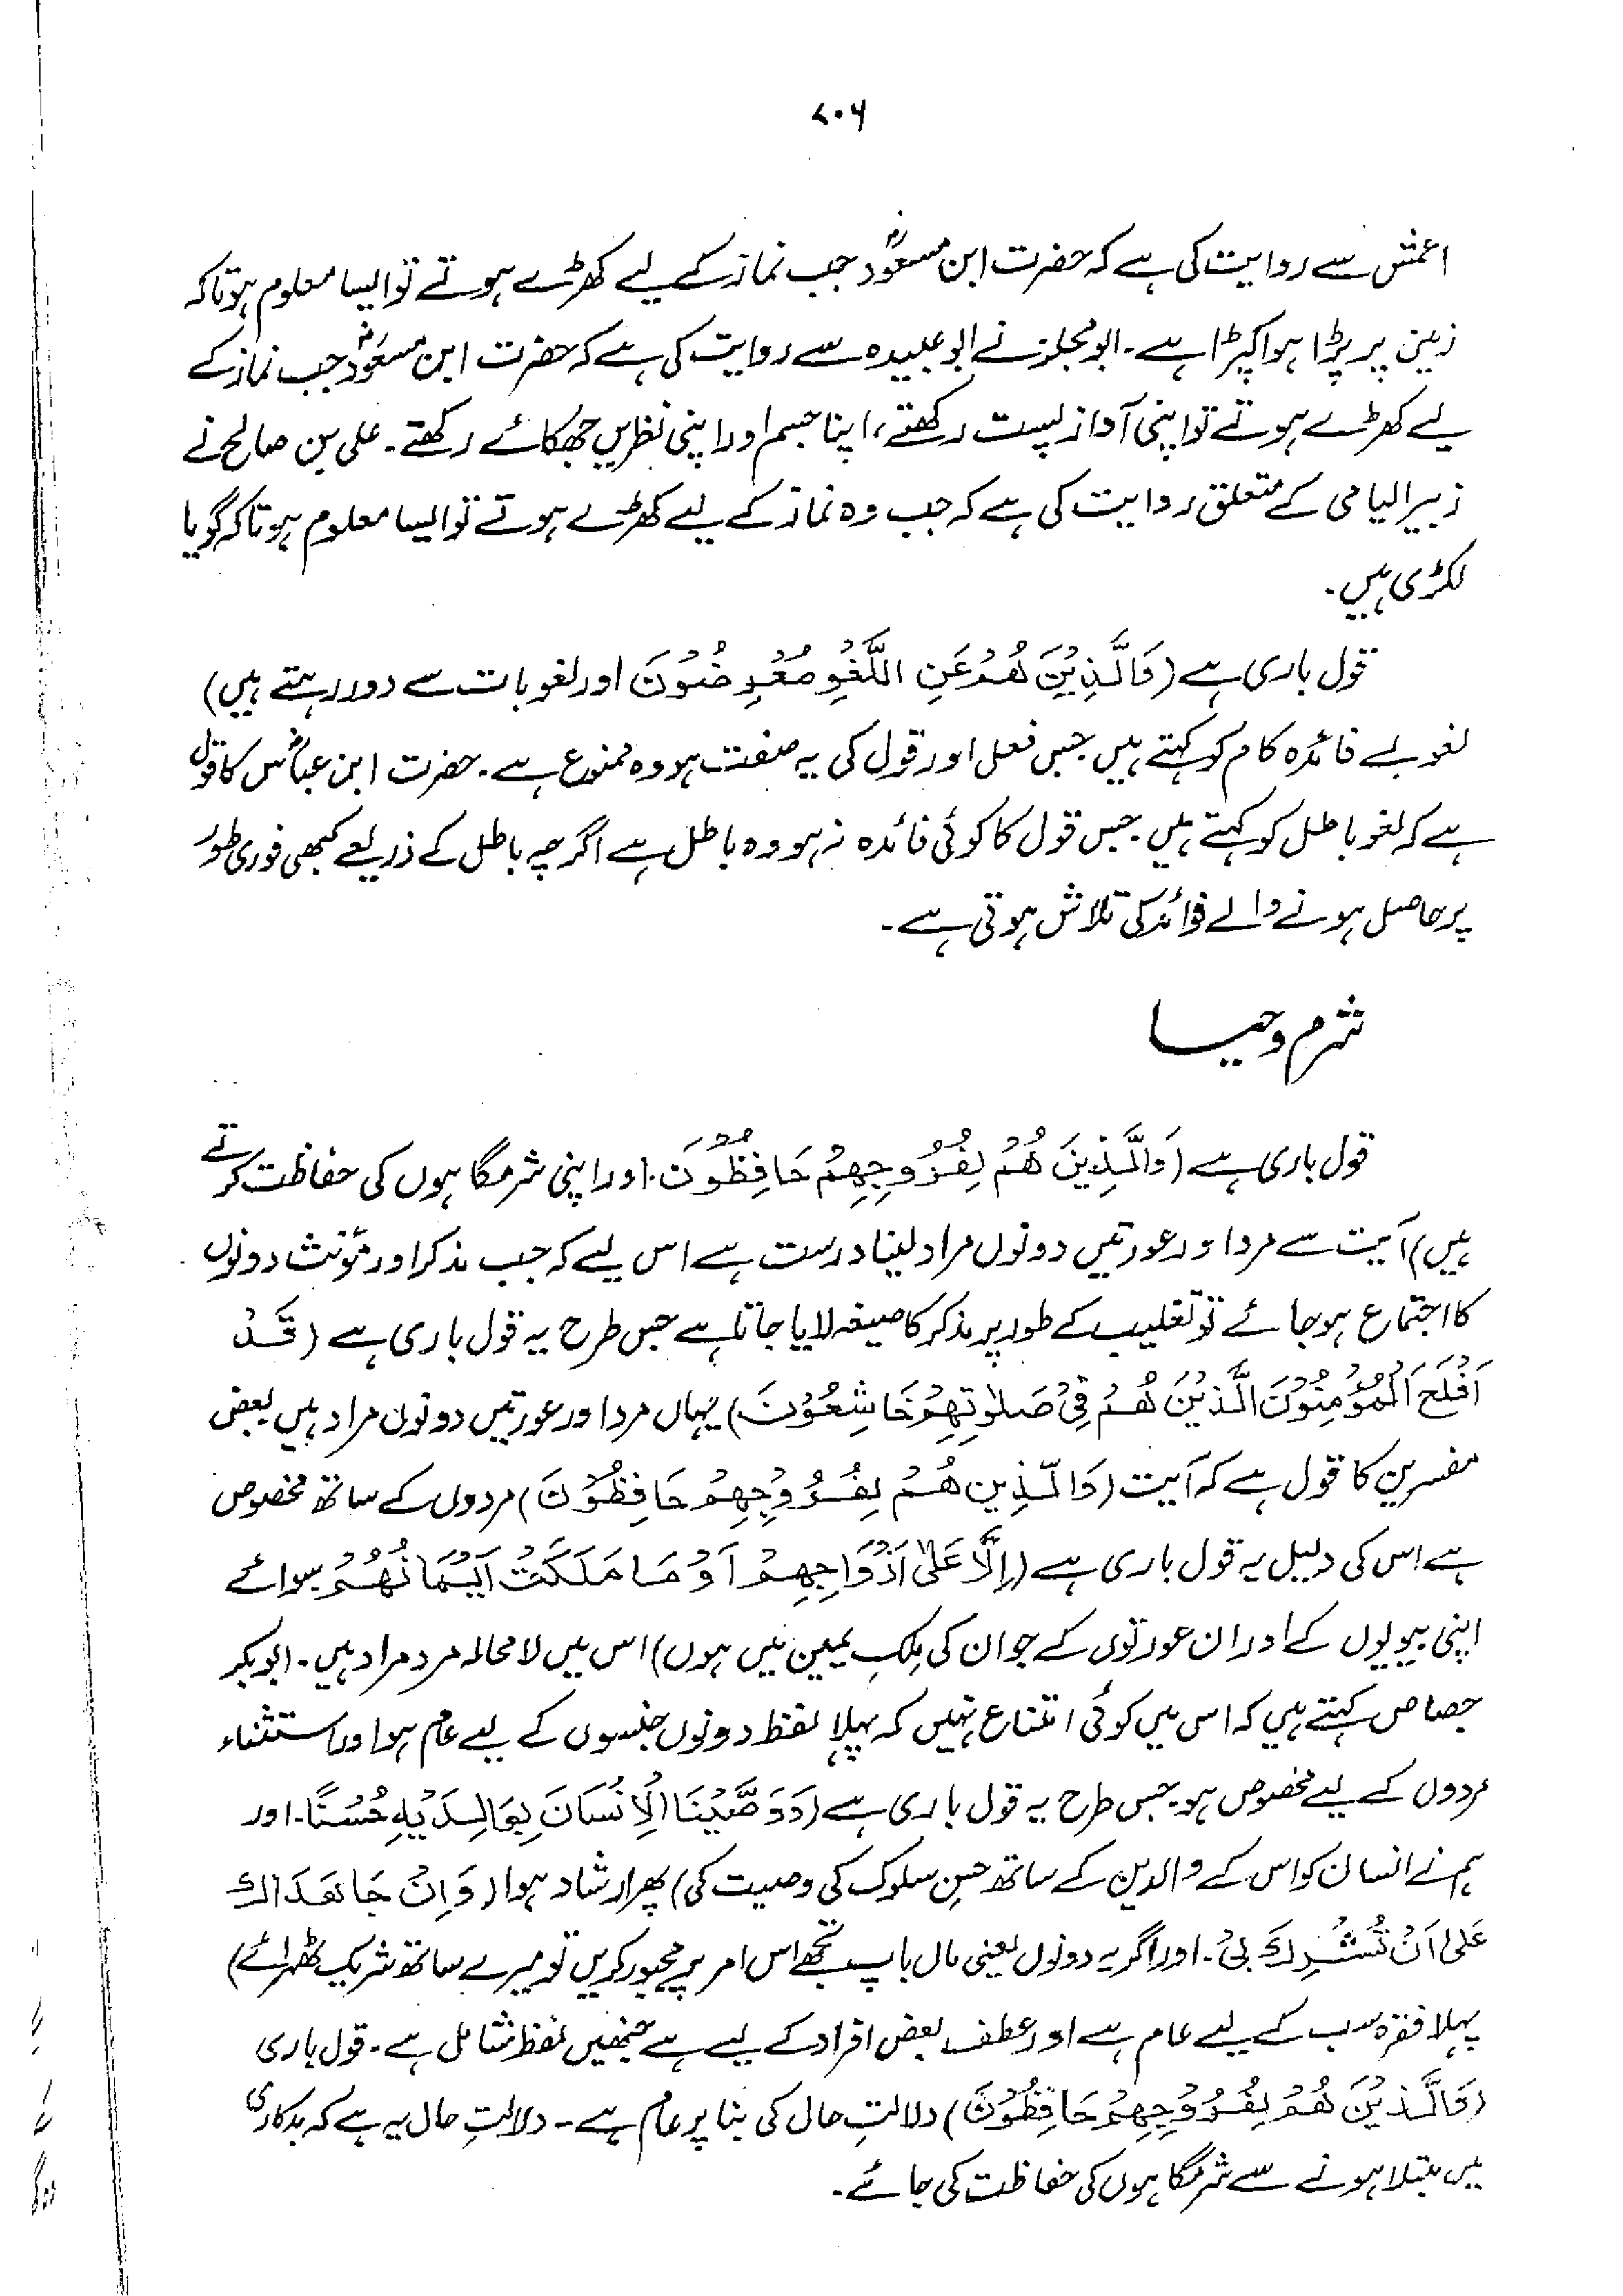 ۷۰۶
اعمش سے روایت کی ہے کہ حضرت ابن مسعودؓ جب نماز کے لیے کھڑے ہوتے تو ایسا معلوم ہوتا کہ
زمین پر پڑا ہوا کپڑا ہے۔ ابو مجلز نے ابو عبیدہ سے روایت کی ہے کہ حضرت ابن مسعودؓ جب نماز کے
لیے کھڑے ہوتے تو اپنی آواز پست رکھتے، اپنا جسم اور اپنی نظریں جھکائے رکھتے۔ علی بن صالح نے
زبیر الیامی کے متعلق روایت کی ہے کہ جب وہ نماز کے لیے کھڑے ہوتے تو ایسا معلوم ہوتا کہ گویا
لکڑی ہیں۔
قول باری ہے (وَالَّذِیْنَ ھُمْ عَنِ اللَّغْوِ مُعْرِضُوْنَ اور لغو بات سے دور رہتے ہیں)
لغو بے فائدہ کام کو کہتے ہیں جس فعل اور قول کی یہ صفت ہو وہ ممنوع ہے۔ حضرت ابن عباسؓ کا قول
ہے کہ لغو باطل کو کہتے ہیں۔ جس قول کا کوئی فائدہ نہ ہو وہ باطل ہے اگرچہ باطل کے ذریعے کبھی فوری طور
پر حاصل ہونے والے فوائد کی تلاش ہوتی ہے۔
شرم و حیا
قول باری ہے (وَالَّذِیْنَ ھُمْ لِفُرُوْجِھِمْ حَافِظُوْنَ۔ اور اپنی شرمگاہوں کی حفاظت کرتے
ہیں) آیت سے مرد اور عورتیں دونوں مراد لینا درست ہے اس لیے کہ جب مذکر اور مؤنث دونوں
کا اجتماع ہو جائے تو تغلیب کے طور پر مذکر کا صیغہ لایا جاتا ہے جس طرح یہ قول باری ہے (قَدْ
اَفْلَحَ الْمُؤْمِنُوْنَ الَّذِیْنَ ھُمْ فِیْ صَلٰوتِھِمْ خَاشِعُوْنَ) یہاں مرد اور عورتیں دونوں مراد ہیں بعض
مفسرین کا قول ہے کہ آیت (وَالَّذِیْنَ ھُمْ لِفُرُوْجِھِمْ حَافِظُوْنَ) مردوں کے ساتھ مخصوص
ہے اس کی دلیل یہ قول باری ہے (اِلَّا عَلٰی اَزْوَاجِھِمْ اَوْ مَا مَلَکَتْ اَیْمَانُھُمْ سوائے
اپنی بیویوں کے اور ان عورتوں کے جو ان کی مِلکِ یمین میں ہوں) اس میں لامحالہ مرد مراد ہیں۔ ابوبکر
جصاص کہتے ہیں کہ اس میں کوئی امتناع نہیں کہ پہلا لفظ دونوں جنسوں کے لیے عام ہو اور استثناء
مردوں کے لیے مخصوص ہو۔ جس طرح یہ قول باری ہے (وَوَصَّیْنَا الْاِنْسَانَ بِوَالِدَیْہِ حُسْنًا۔ اور
ہم نے انسان کو اس کے والدین کے ساتھ حسنِ سلوک کی وصیت کی) پھر ارشاد ہوا (وَاِنْ جَاھَدَاکَ
عَلٰی اَنْ تُشْرِکَ بِیْ۔ اور اگر یہ دونوں یعنی ماں باپ تجھے اس امر پر مجبور کریں تو میرے ساتھ شریک ٹھہرائے)
پہلا فقرہ سب کے لیے عام ہے اور عطف بعض افراد کے لیے ہے جنھیں لفظ شامل ہے۔ قول باری
(وَالَّذِیْنَ ھُمْ لِفُرُوْجِھِمْ حَافِظُوْنَ) دلالتِ حال کی بنا پر عام ہے۔ دلالتِ حال یہ ہے کہ بدکاری
میں مبتلا ہونے سے شرمگاہوں کی حفاظت کی جائے۔